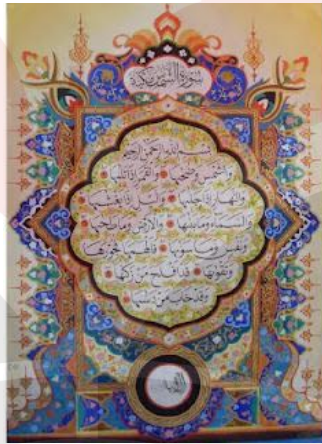 سورة الشمس مكية
بسم الله الرحمن الرحيم
والشمس وضحيها والقمر اذا تليها
والنهار اذا جليها والليل اذا يغشيها
والسماء وما بنيها والارض وما طحيها
ونفس وما سويها فالهمها فجورها
وتقويها قد افلح من زكيها
وقد خاب من دسيها